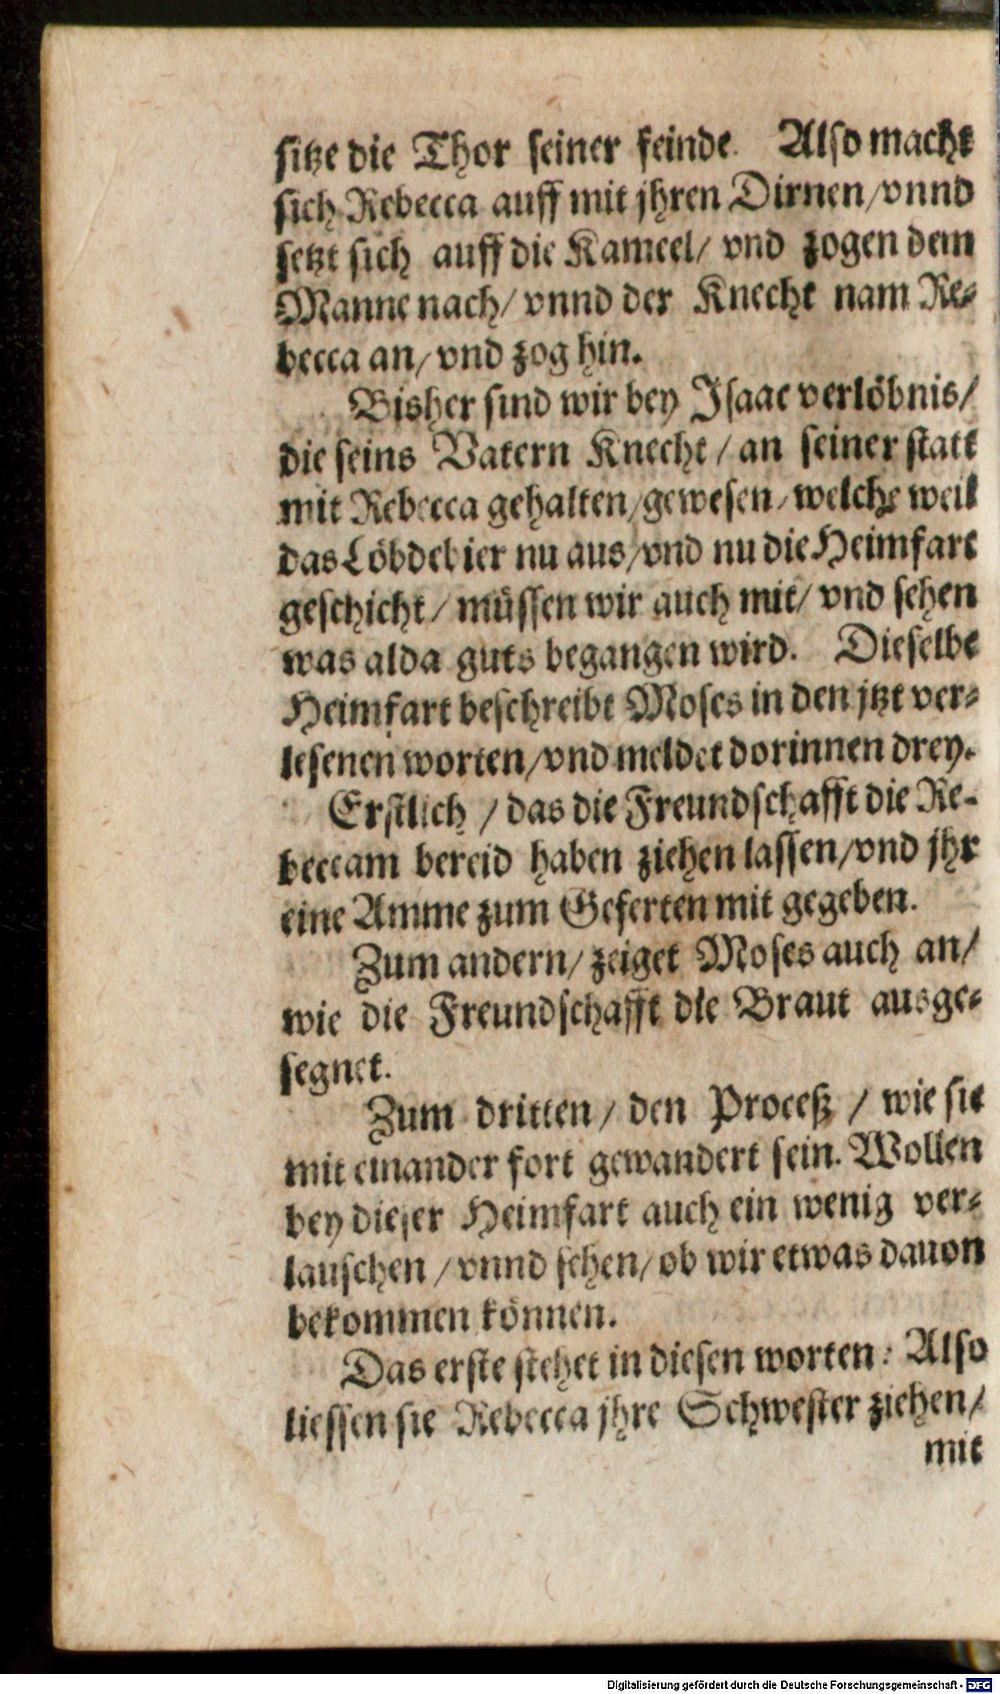 sitze die Thor seiner feinde. Also macht
sich Rebecca auff mit jhren Dirnen/vnnd
setzt sich auff die Kameel/ vnd zogen dem
Manne nach/ vnnd der Knecht nam Re-
becca an/ vnd zog hin.
Bisher sind wir bey Isaac verlöbnis/
die seins Vatern Knecht / an seiner statt
mit Rebecca gehalten/gewesen/ welche weil
das Löbdebier nu aus/vnd nu die Heimfart
geschicht/ müssen wir auch mit/ vnd sehen
was alda guts begangen wird. Dieselbe
Heimfart beschreibt Moses in den jtzt ver-
lesenen worten/vnd meldet dorinnen drey.
Erstlich / das die Freundschafft die Re-
beccam bereid haben ziehen lassen/vnd jhr
eine Amme zum Geferten mit gegeben.
Zum andern/ zeiget Moses auch an/
wie die Freundschafft die Braut ausge-
segnet.
Zum dritten / den Proceß / wie sie
mit einander fort gewandert sein. Wollen
bey dieser Heimfart auch ein wenig ver-
lauschen /vnnd sehen/ ob wir etwas dauon
bekommen können.
Das erste stehet in diesen worten: Also
liessen sie Rebecca jhre Schwester ziehen/
mit
Digitalisierung gefördert durch die Deutsche Forschungsgemeinschaft - DFG